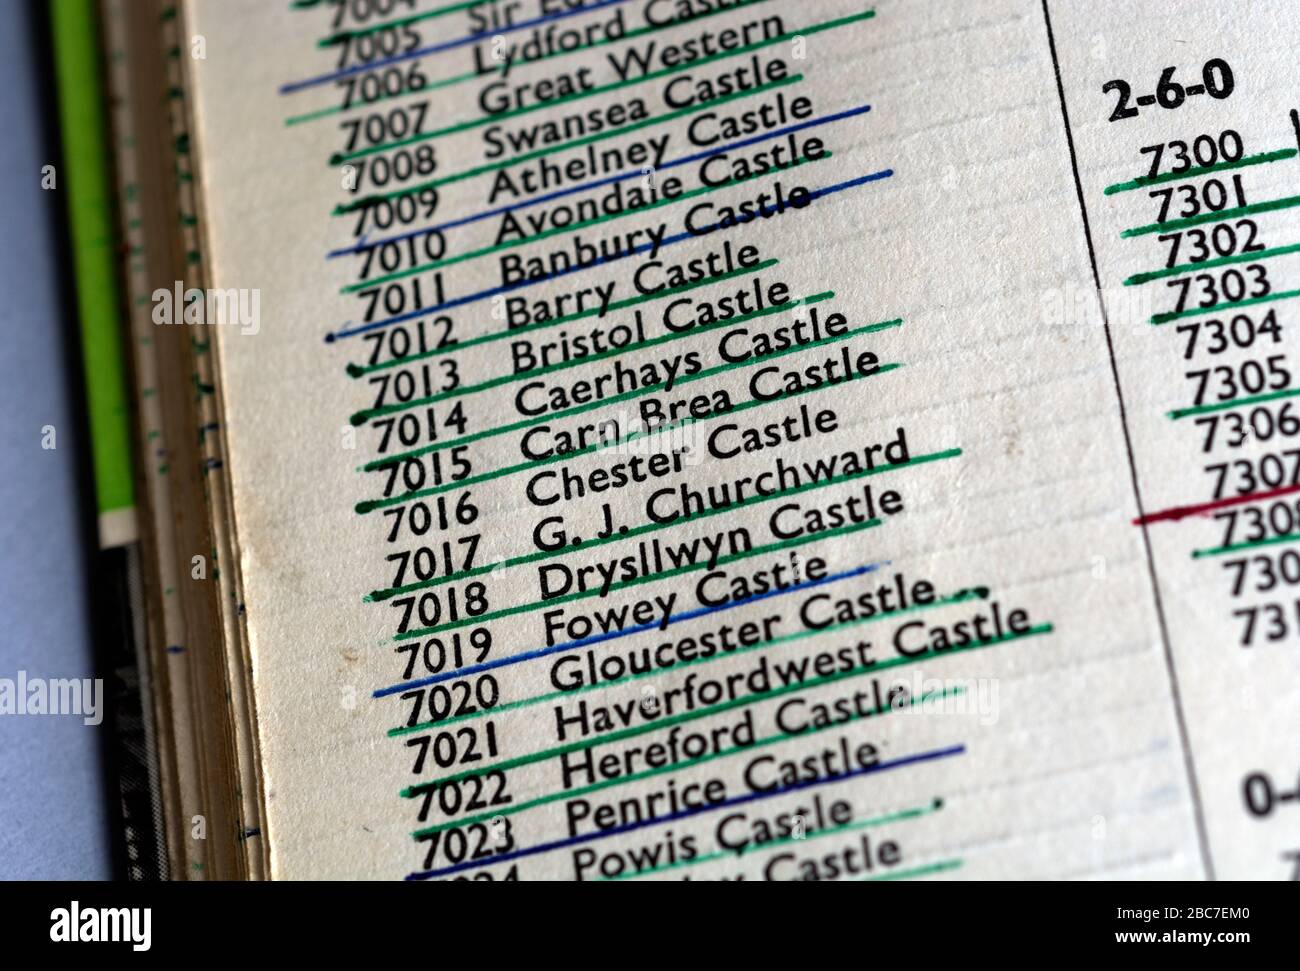 7004
7005 Sir
7006 Lydford Castle
7007 Great Western
7008 Swansea Castle
7009 Athelney Castle
7010 Avondale Castle
7011 Banbury Castle
7012 Barry Castle
7013 Bristol Castle
7014 Caerhays Castle
7015 Carn Brea Castle
7016 Chester Castle
7017 G. J. Churchward
7018 Drysllwyn Castle
7019 Fowey Castle
7020 Gloucester Castle
7021 Haverfordwest Castle
7022 Hereford Castle
7023 Penrice Castle
Powis Castle
Castle
2-6-0
7300
7301
7302
7303
7304
7305
7306
7307
7308
730
731
0-
alamy
Image ID: 2BC7EM0
www.alamy.com